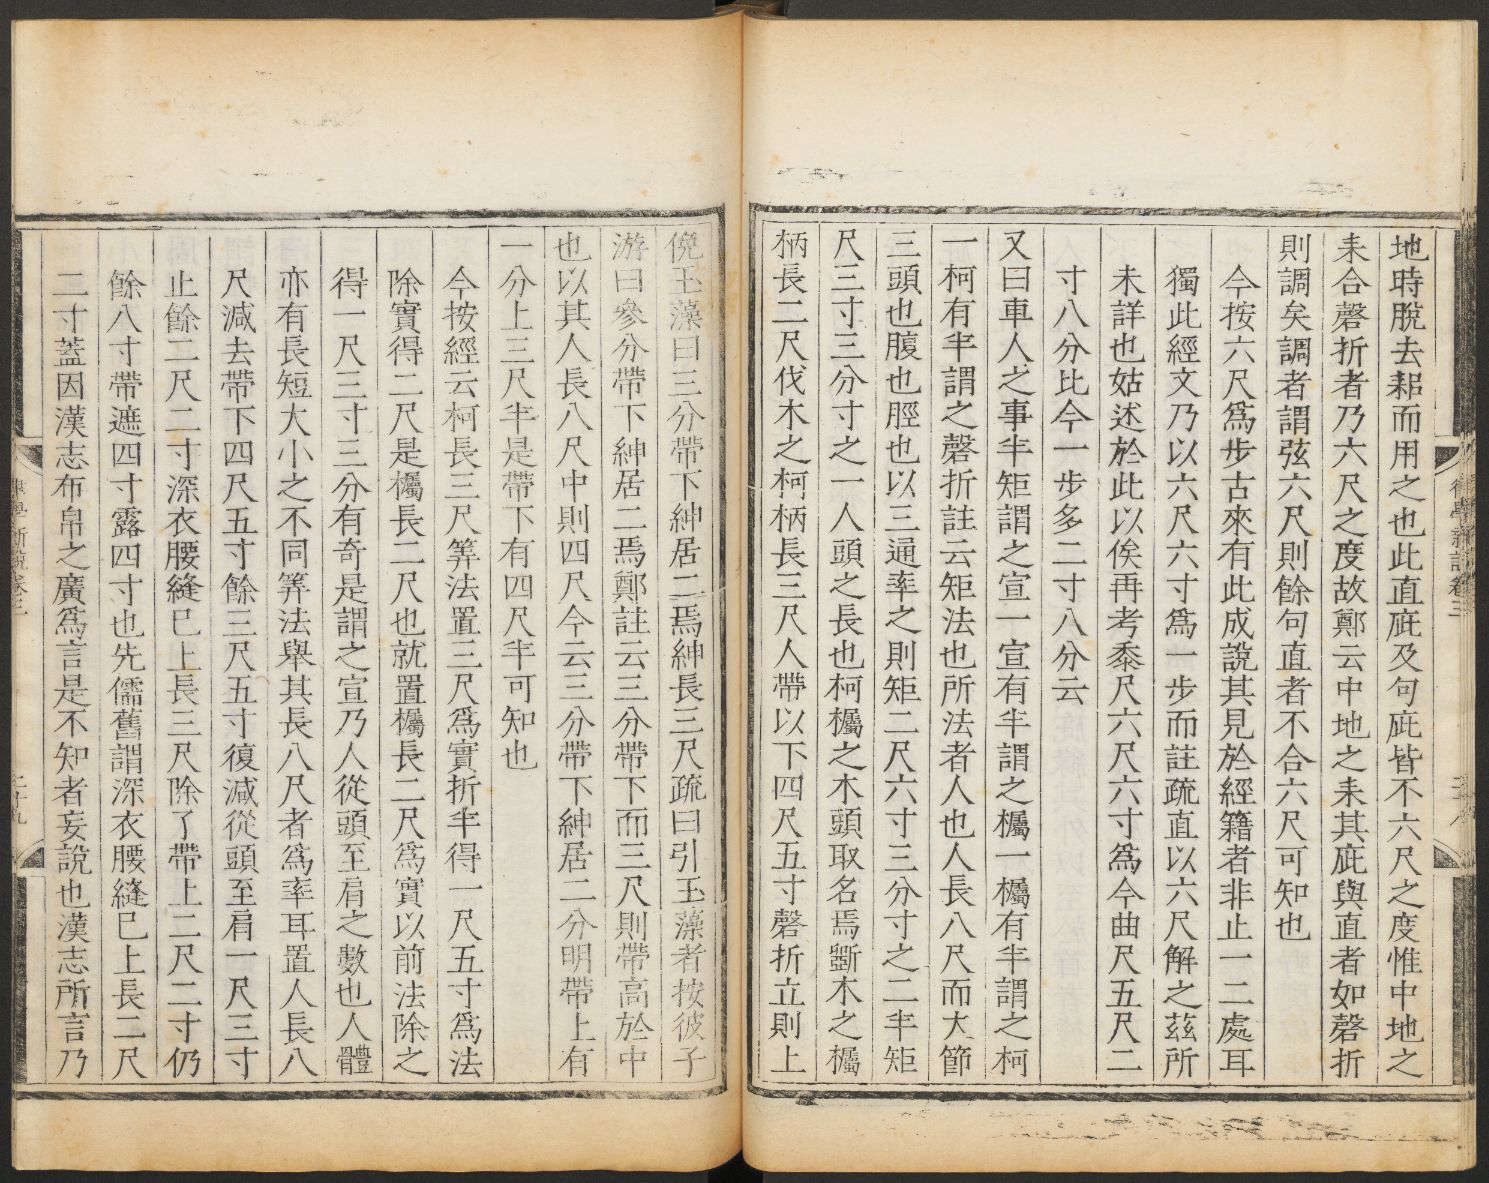 地時脫去耜而用之也此直庇及句庇皆不六尺之度惟中地之
耒合磬折者乃六尺之度故鄭云中地之耒其庇與直者如磬折
則調矣調者謂弦六尺則餘句直者不合六尺可知也
今按六尺爲步古來有此成說其見於經籍者非止一二處耳
獨此經文乃以六尺六寸爲一步而註疏直以六尺解之茲所
未詳也姑述於此以俟再考黍尺六尺六寸爲今曲尺五尺二
寸八分比今一步多二寸八分云
又曰車人之事半矩謂之宣一宣有半謂之欘一欘有半謂之柯
一柯有半謂之磬折註云矩法也所法者人也人長八尺而大節
三頭也腹也脛也以三通率之則矩二尺六寸三分寸之二半矩
尺三寸三分寸之一人頭之長也柯欘之木頭取名焉斵木之欘
柄長二尺伐木之柯柄長三尺人帶以下四尺五寸磬折立則上
俛玉藻曰三分帶下紳居二焉紳長三尺疏曰引玉藻者按彼子
游曰參分帶下紳居二焉鄭註云三分帶下而三尺則帶高於中
也以其人長八尺中則四尺今云三分帶下紳居二分明帶上有
一分上三尺半是帶下有四尺半可知也
今按經云柯長三尺筭法置三尺爲實折半得一尺五寸爲法
除實得二尺是欘長二尺也就置欘長二尺爲實以前法除之
得一尺三寸三分有奇是謂之宣乃人從頭至肩之數也人體
亦有長短大小之不同筭法舉其長八尺者爲率耳置人長八
尺減去帶下四尺五寸餘三尺五寸復減從頭至肩一尺三寸
止餘二尺二寸深衣腰縫巳上長三尺除了帶上二尺二寸仍
餘八寸帶遮四寸露四寸也先儒舊謂深衣腰縫巳上長二尺
二寸蓋因漢志布帛之廣爲言是不知者妄說也漢志所言乃